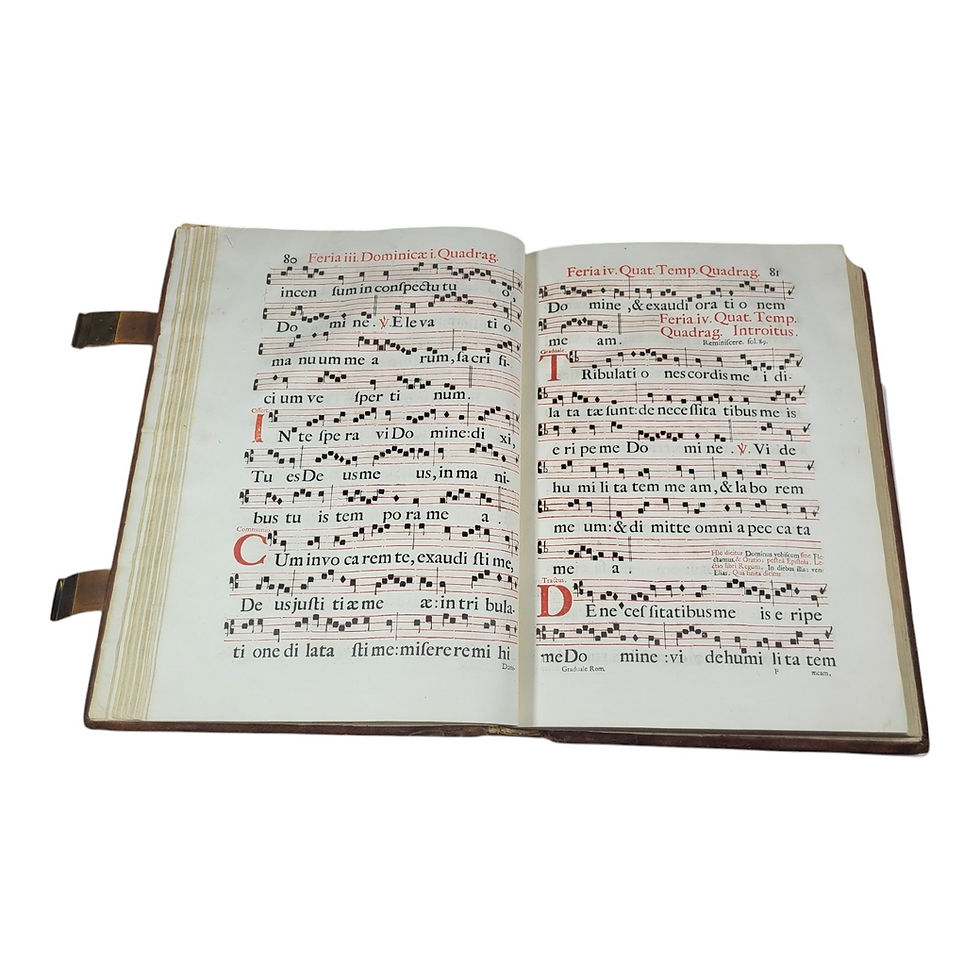 80 Feria iii. Dominicæ i. Quadrag.
incen ſum in conſpectu tu o,
Do mi ne. ℣. Eleva ti o
ma nu um me a rum, ſa cri fi-
ci um ve ſper ti num.
Offert.
IN te ſpe ra vi Do mine: di xi,
Tu es De us me us, in ma ni-
bus tu is tem po ra me a.
Communio.
CUm invo ca rem te, exaudi ſti me,
De us juſti ti æ me æ: in tri bula-
ti one di lata ſti me: miſere re mi hi
Domi-
Feria iv. Quat. Temp. Quadrag. 81
Do mine, & exaudi ora ti o nem
me am.
Feria iv. Quat. Temp.
Quadrag. Introitus.
Reminiſcere. fol. 89.
Graduale.
TRibulati o nes cordis me i di-
la ta tæ ſunt: de neceſſita tibus me is
e ri pe me Do mi ne. ℣. Vi de
hu mi li ta tem me am, & la bo rem
me um: & di mitte omni a pec ca ta
me a.
Hic dicitur Dominus vobiſcum ſine Fle-
ctamus. & Oratio: poſtea Epiſtola. Le-
ctio libri Regum. In diebus illis: venit
Elias. Qua finita dicitur
Tractus.
DE ne ceſ ſitatibus me is e ripe
me Do mine: vi de humi li ta tem
Graduale Rom. F meam,